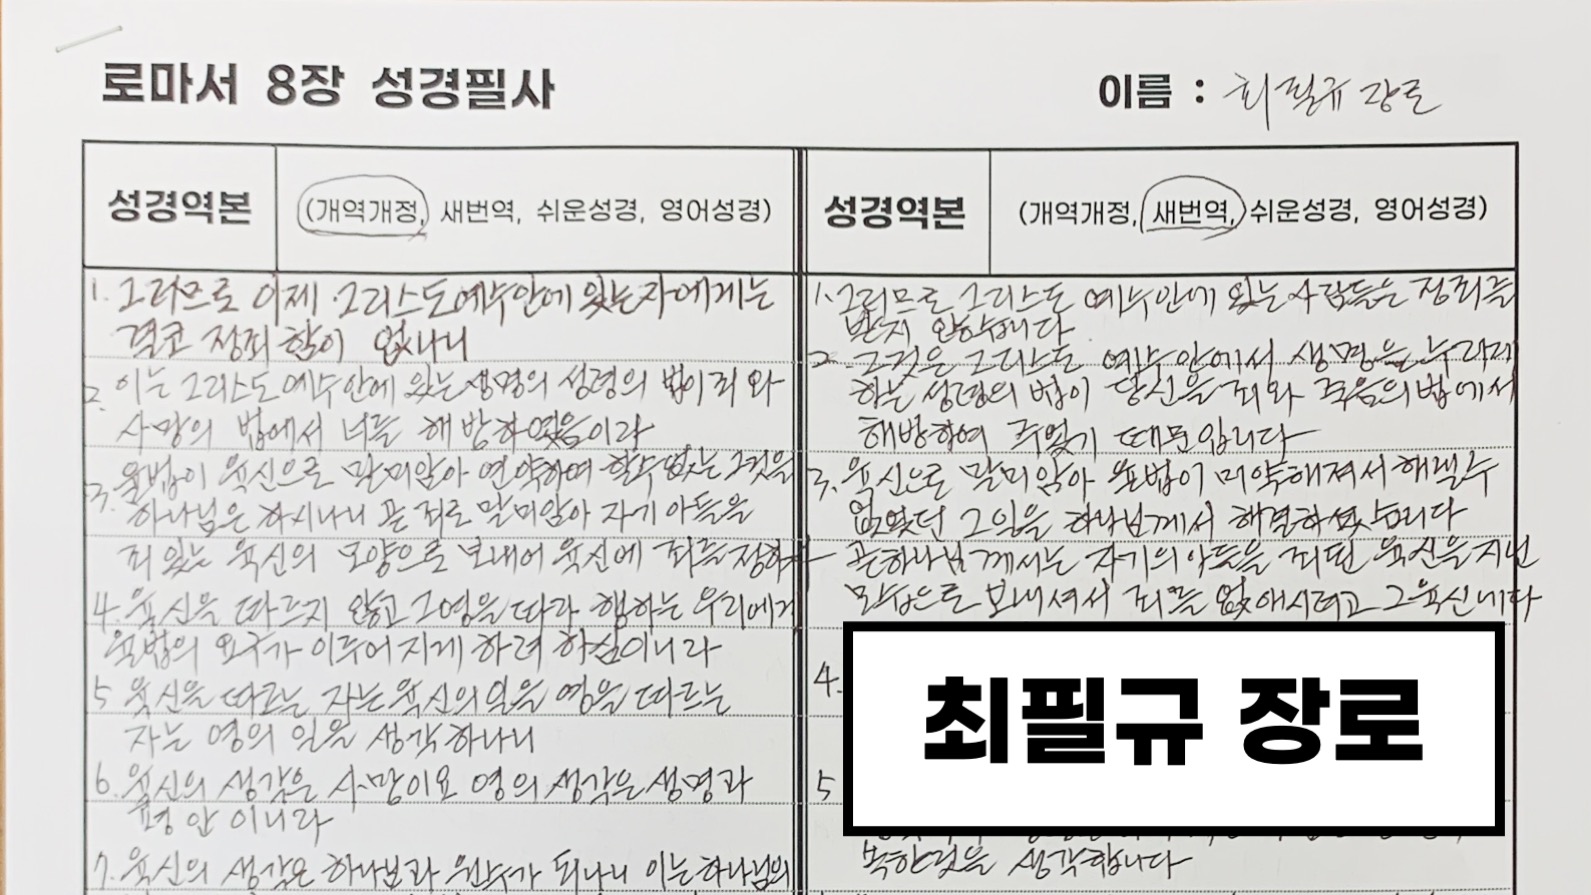 로마서 8장 성경필사
이름 : 최필규 장로
성경역본
(개역개정, 새번역, 쉬운성경, 영어성경)
1. 그러므로 이제 그리스도 예수 안에 있는 자에게는
결코 정죄함이 없나니
2. 이는 그리스도 예수 안에 있는 생명의 성령의 법이 죄와
사망의 법에서 너를 해방하였음이라
3. 율법이 육신으로 말미암아 연약하여 할 수 없는 그것을
하나님은 하시나니 곧 죄로 말미암아 자기 아들을
죄 있는 육신의 모양으로 보내어 육신에 죄를 정하사
4. 육신을 따르지 않고 그 영을 따라 행하는 우리에게
율법의 요구가 이루어지게 하려 하심이니라
5 육신을 따르는 자는 육신의 일을 영을 따르는
자는 영의 일을 생각하나니
6. 육신의 생각은 사망이요 영의 생각은 생명과
평안이니라
7. 육신의 생각은 하나님과 원수가 되나니 이는 하나님의
성경역본
(개역개정, 새번역, 쉬운성경, 영어성경)
1. 그러므로 그리스도 예수 안에 있는 사람들은 정죄를
받지 않습니다
2. 그것은 그리스도 예수 안에서 생명을 누리게
하는 성령의 법이 당신을 죄와 죽음의 법에서
해방하여 주었기 때문입니다
3. 육신으로 말미암아 율법이 미약해져서 해낼 수
없었던 그 일을 하나님께서 해결하셨습니다
곧 하나님께서는 자기의 아들을 죄된 육신을 지닌
모습으로 보내셔서 죄를 없애시려고 그 육신에다
4.
최필규 장로
5
속한 것을 생각합니다